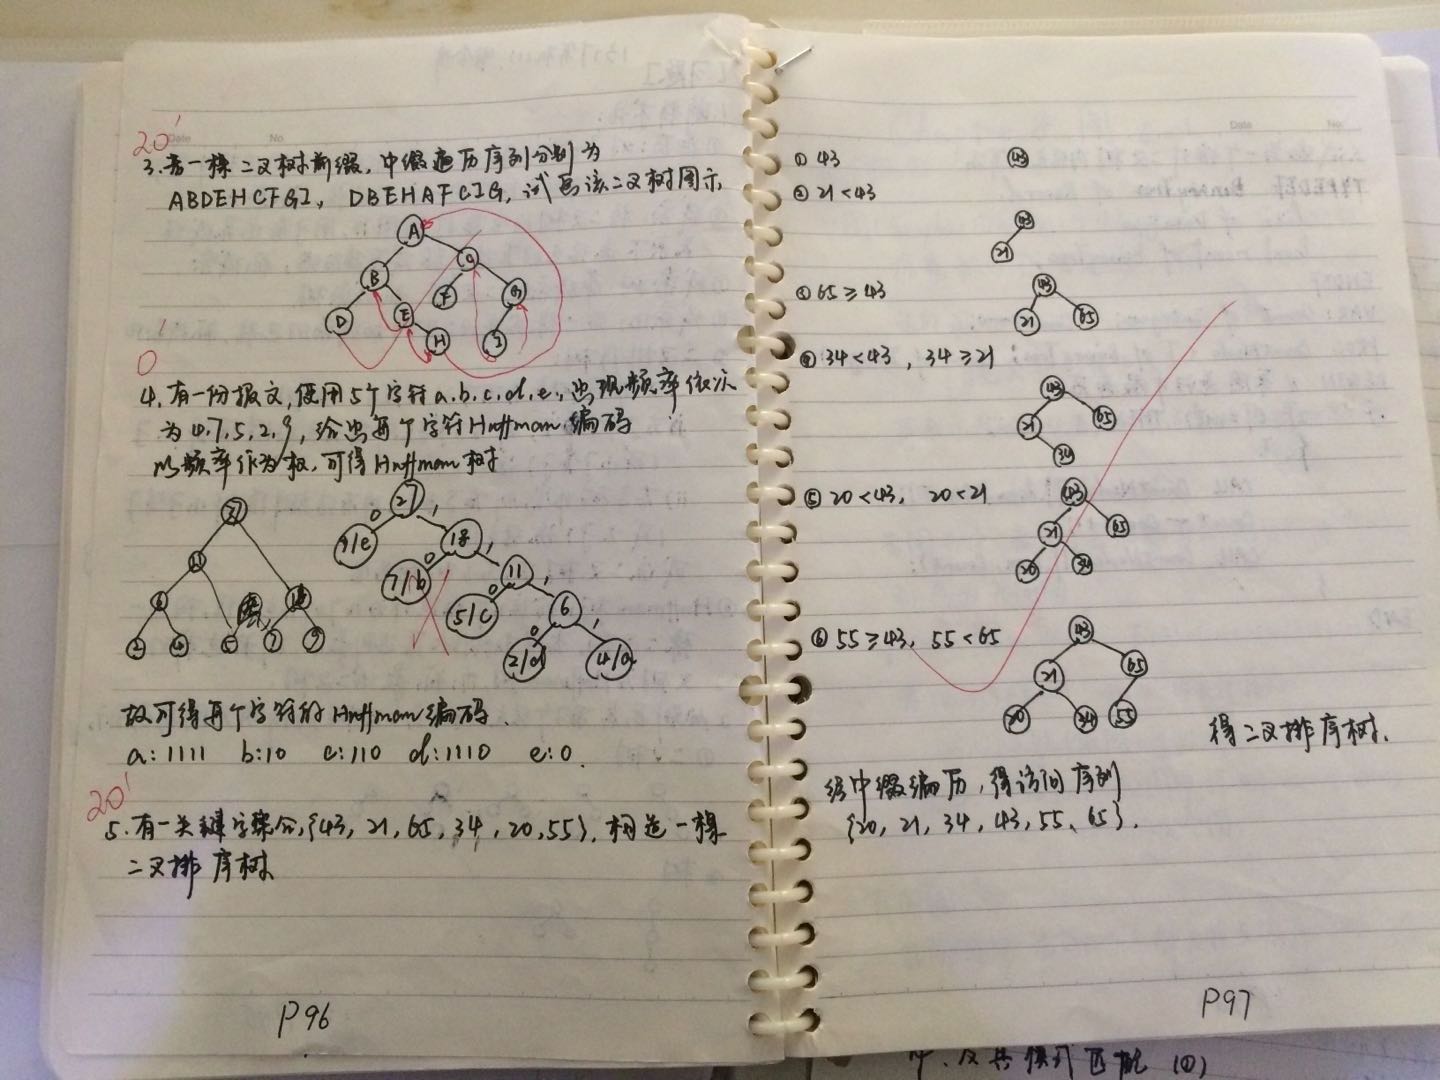 20'
3.若一棵二叉树前缀,中缀遍历序列分别为
ABDEHCFGI, DBEHAFCIG,试画该二叉树图示
A
B C
D E F G
H I
0'
4.有一份报文,使用5个字符a.b.c.d.e,出现频率依次
为4.7.5.2.9,给出每个字符Huffman编码
以频率作为权,可得Huffman树
27
11
6 16
2 4 5 7 9
27
0 1
9/e 18
0 1
7/b 11
0 1
5/c 6
0 1
2/d 4/a
故可得每个字符的Huffman编码.
a:1111 b:10 c:110 d:1110 e:0.
20'
5.有一关键字集合,{43,21,65,34,20,55},构造一棵
二叉排序树
P96
Date No.
① 43
43
② 21<43
43
21
③ 65≥43
43
21 65
④ 34<43, 34≥21
43
21 65
34
⑤ 20<43, 20<21
43
21 65
20 34
⑥ 55≥43, 55<65
43
21 65
20 34 55
得二叉排序树.
经中缀编历,得访问序列
{20, 21, 34, 43, 55, 65}.
P97
及其模式匹配